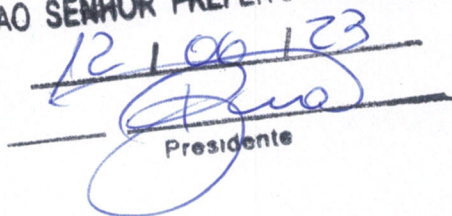 AO SENHOR PREFEITO
12 / 06 / 23
Presidente